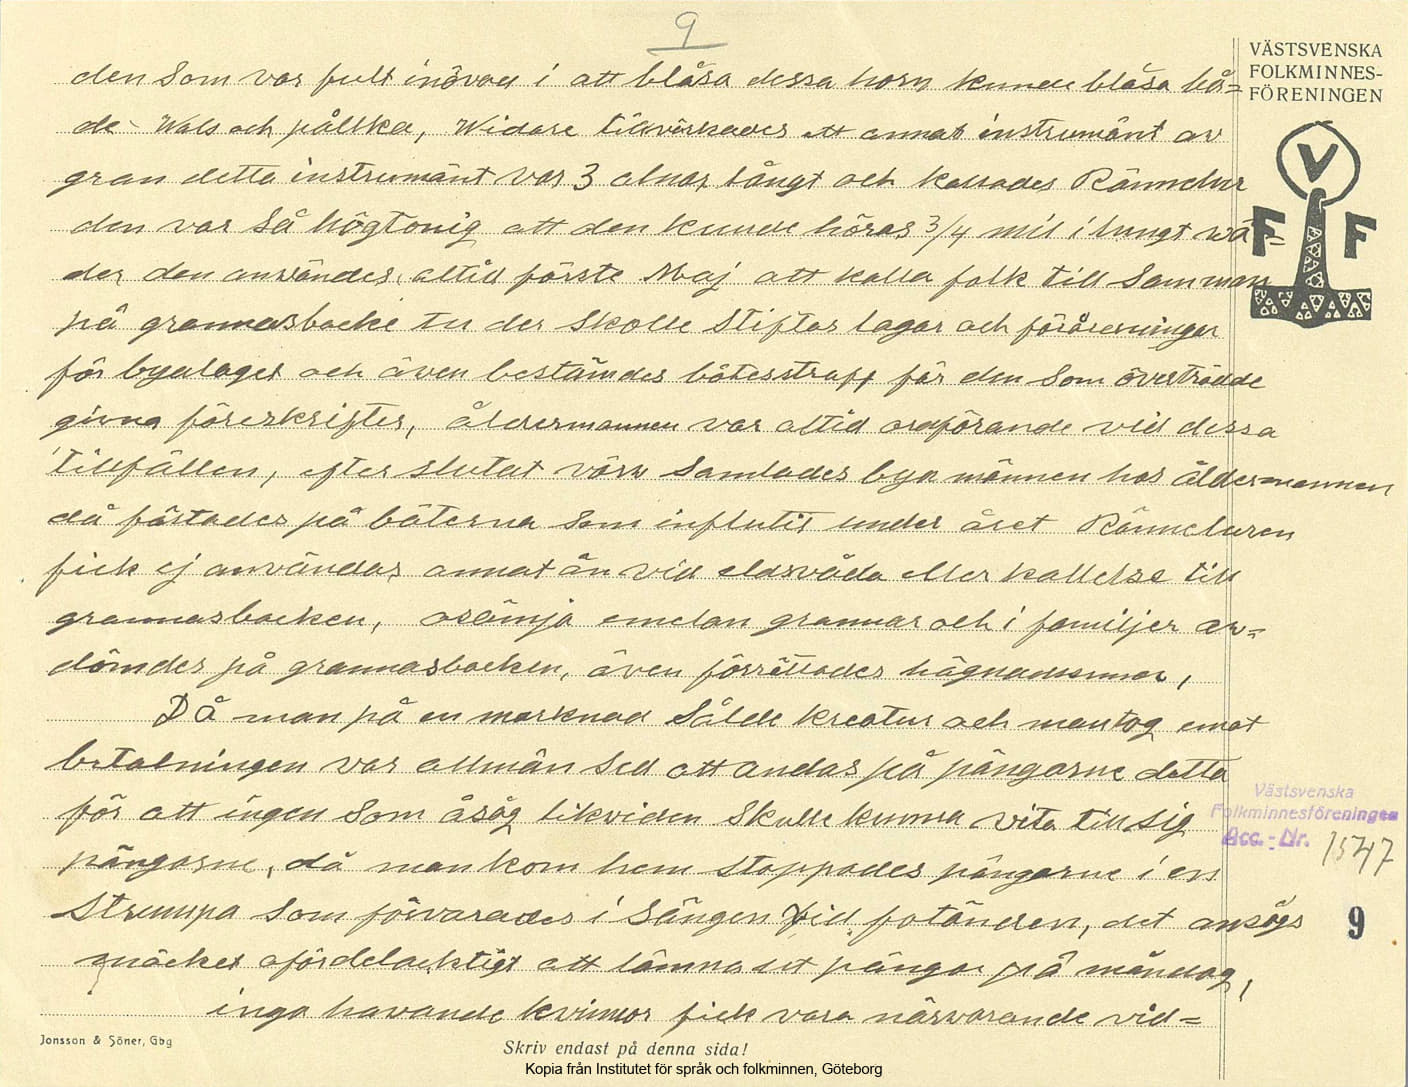 9
VÄSTSVENSKA
FOLKMINNES-
FÖRENINGEN
V
F F
den Som var fult inövad i att blåsa dessa horn kunde blåsa bå=
de Wals och pålska, Widare tillvirkades ett annat instrumänt av
gran detta instrumänt var 3 alnar långt och kallades Rännelur
den var Så högtonig att den kunde höras 3/4 mil i lungt vä=
der den användes altid förste Maj att kalla folk till Samman
på grannasbacke där Skolle Stiftas lagar och förordningar
för byalaget och även bestämdes bötesstraff för den Som överträdde
givna föreskrifter, åldermannen var altid ordförande vid dessa
tillfällen, efter slutat värv Samlades bya männen hos åldermannen
då förtades på böterna Som influtit under året Ränneluren
fick ej användas annat än vid eldsvåda eller kallelse till
grannasbacken, osämja emelan grannar och i familjer av=
dömdes på grannasbacken, även förrättades hägnadssyner,
Då man på en marknad Sålde kreatur och mantog emot
betalningen var allmän Sed att andas på pängarne detta
för att ingen Som åsåg likviden Skulle kunna vita till sig
pängarne, då man kom hem stoppades pängarne i en
Strumpa Som förvarades i Sängen Vid fotändren, det ansågs
mäcket ofördelacktigt att lämna ut pängar på måndag,
inga havande kvinnor fick vara närvarande vid=
Västsvenska
Folkminnesföreningen
Acc.-Nr. 1547
9
Jonsson & Söner, Gbg
Skriv endast på denna sida!
Kopia från Institutet för språk och folkminnen, Göteborg